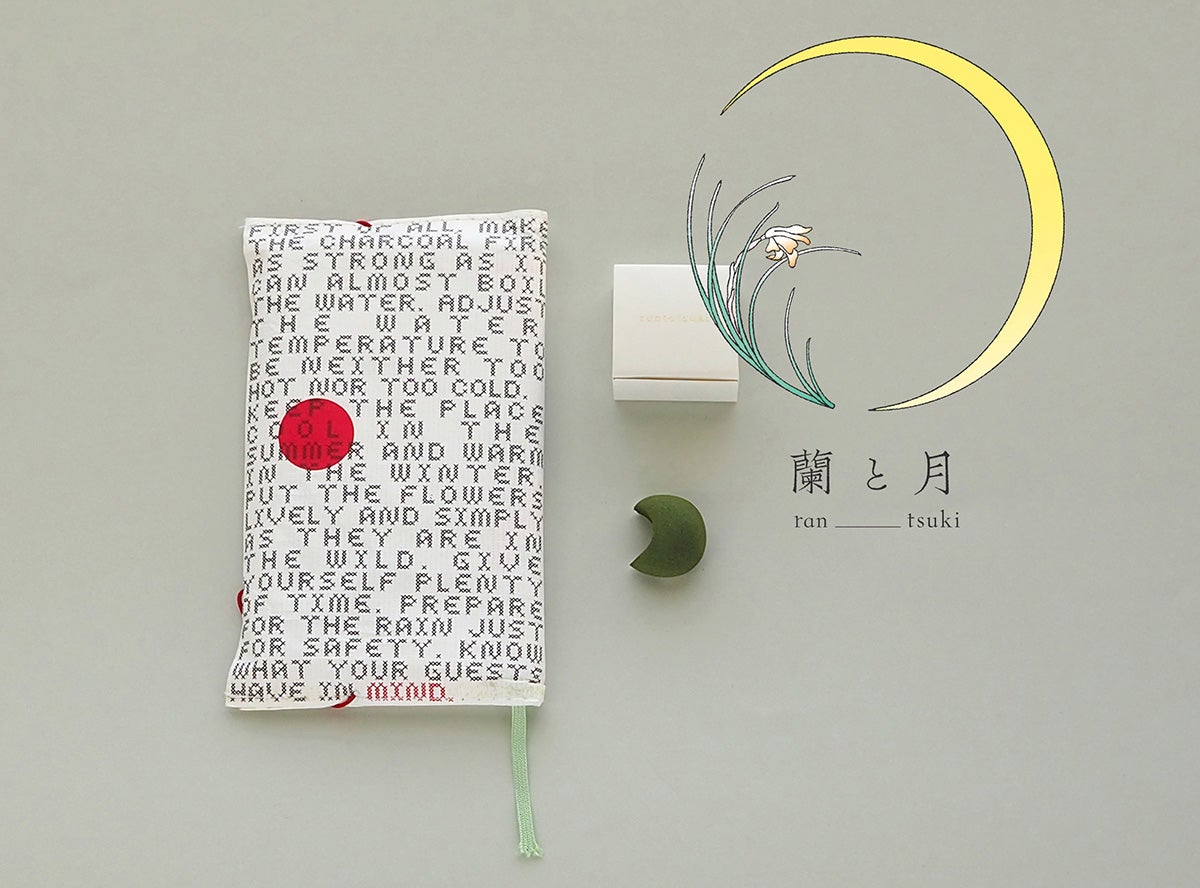 FIRST OF ALL, MAK
THE CHARCOAL FIR
AS STRONG AS IT
CAN ALMOST BOIL
THE WATER. ADJUST
THE WATER
TEMPERATURE TO
BE NEITHER TOO
HOT NOR TOO COLD.
KEEP THE PLACE
COOL IN THE
SUMMER AND WARM
IN THE WINTER
PUT THE FLOWERS
LIVELY AND SIMPLY
AS THEY ARE IN
THE WILD. GIVE
YOURSELF PLENTY
OF TIME. PREPARE
FOR THE RAIN JUST
FOR SAFETY. KNOW
WHAT YOUR GUESTS
HAVE IN MIND.
蘭と月
ran tsuki